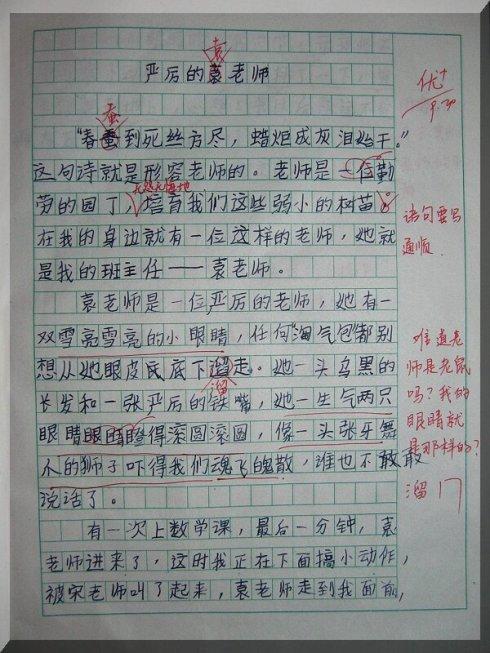 袁
严厉的袁老师
优+
9.30
蚕
"春蚕到死丝方尽，蜡炬成灰泪始干。"
这句诗就是形容老师的。老师是一位勤
无怨无悔地
劳的园丁，培育我们这些弱小的树苗。
语句要写
通顺
在我的身边就有一位这样的老师，她就
是我的班主任——袁老师。
袁老师是一位严厉的老师，她有一
双雪亮雪亮的小眼睛，任何"淘气包"都别
想从她眼皮底下溜走。她一头乌黑的
溜
长发和一张严厉的铁嘴，她一生气两只
眼睛瞪得滚圆滚圆，像一头张牙舞
爪的狮子吓得我们魂飞魄散，谁也不敢
说话了。
难道老
师是老鼠
吗？我的
眼睛就
是那样的？
溜
有一次上数学课，最后一分钟，袁
老师进来了，这时我正在下面搞小动作，
被宋老师叫了起来，袁老师走到我面前，